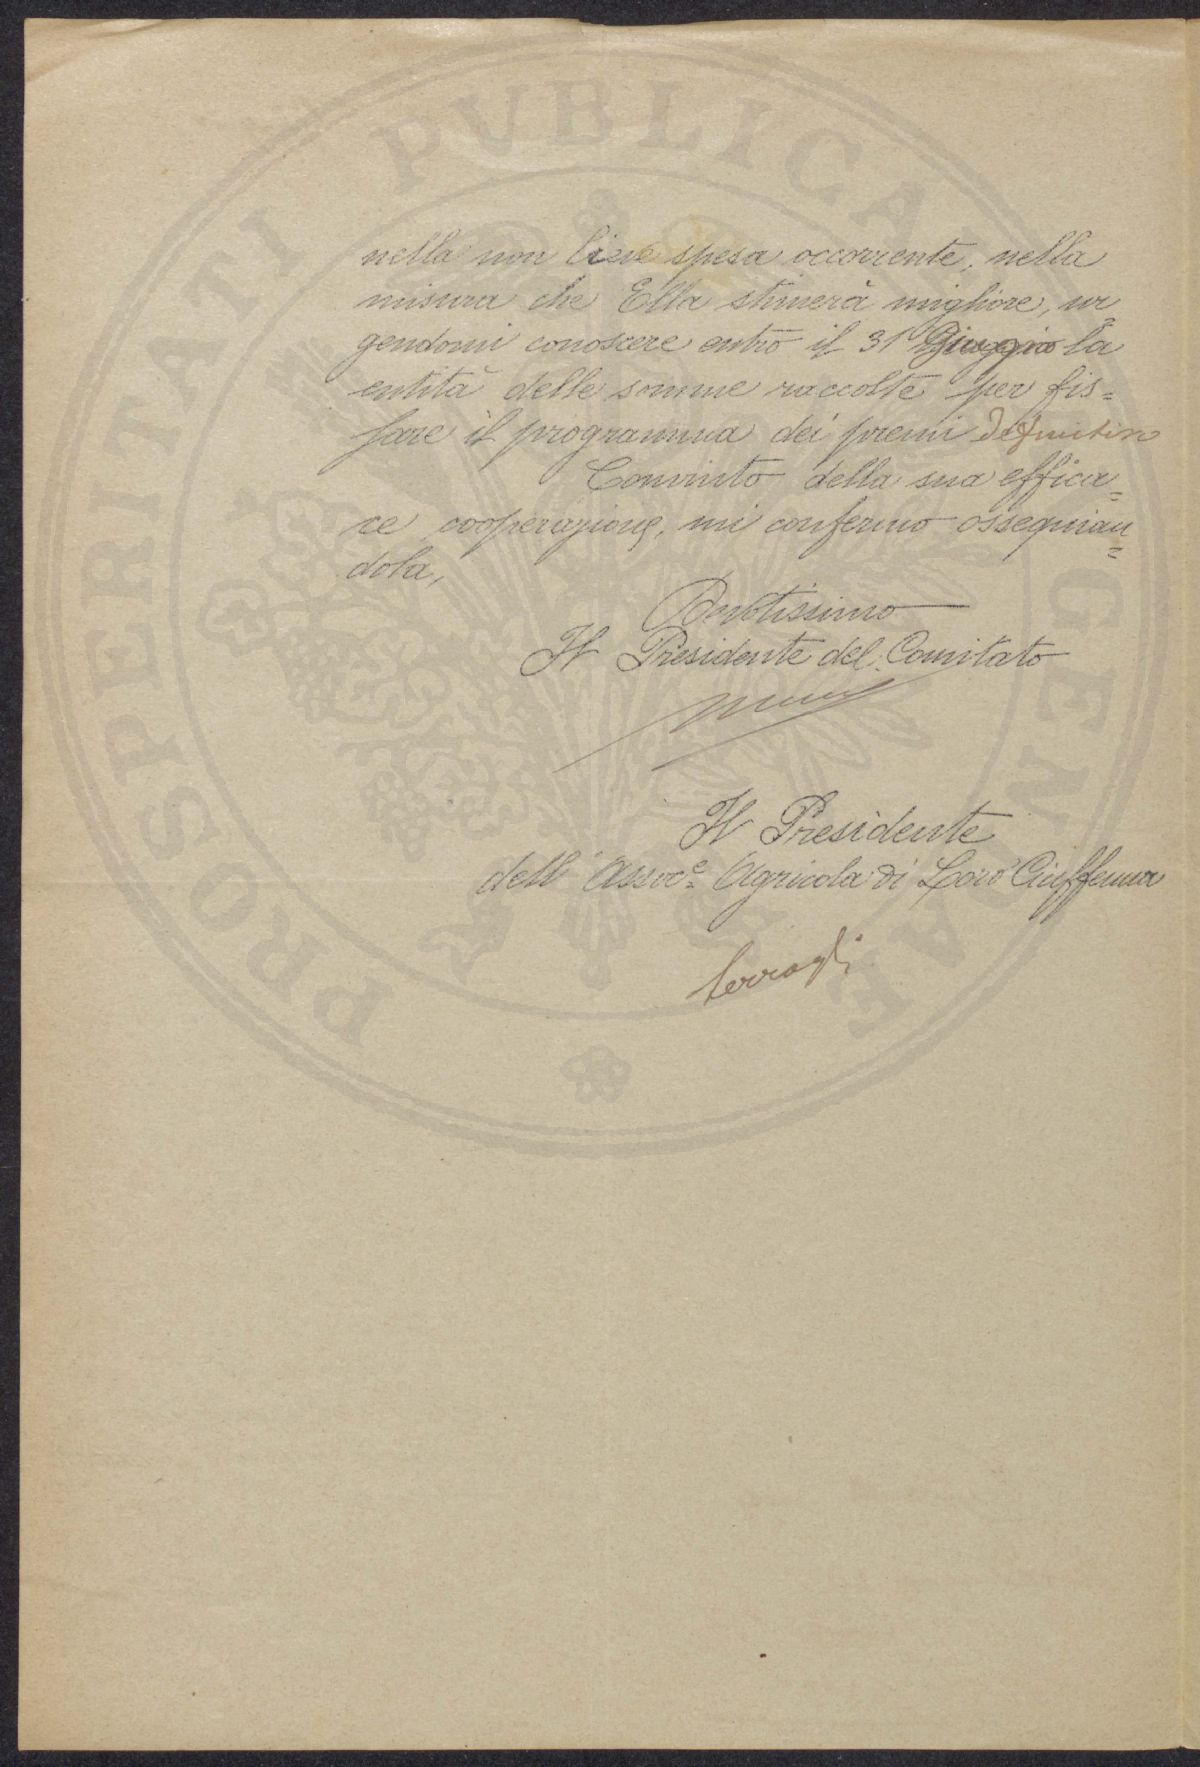 PROSPERITATI PUBLICAE AUGENDAE
nella non lieve spesa occorrente, nella
misura che Ella stimerà migliore, ur=
gendomi conoscere entro il 31 la
entità delle somme raccolte per fis=
sare il programma dei premi definitivo
Convinto della sua effica=
ce cooperazione, mi confermo ossequian=
dola,
Devotissimo
Il Presidente del Comitato
Il Presidente
dell'Assoc.e Agricola di Loro Ciuffenna